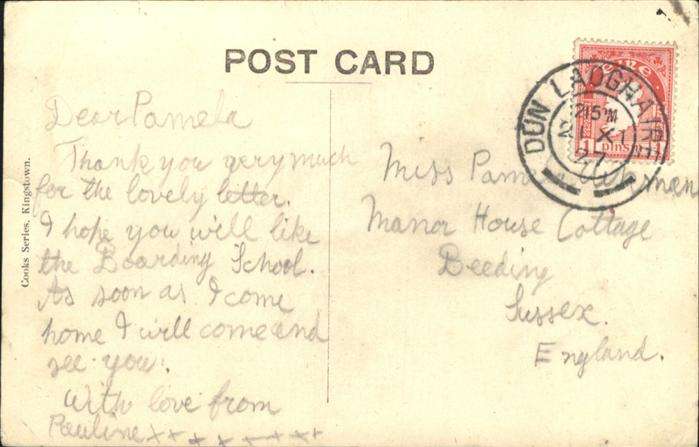 POST CARD
Dear Pamela
Thank you very much
for the lovely letter.
I hope you will like
the Boarding School.
As soon as I come
home I will come and
see you.
With love from
Pauline x x x x x x x x
Cooks Series, Kingstown.
DÚN LAOGHAIRE
215 PM
21 XI
27
1 PINS
Miss
Manor House Cottage
Beeding
Sussex.
England.